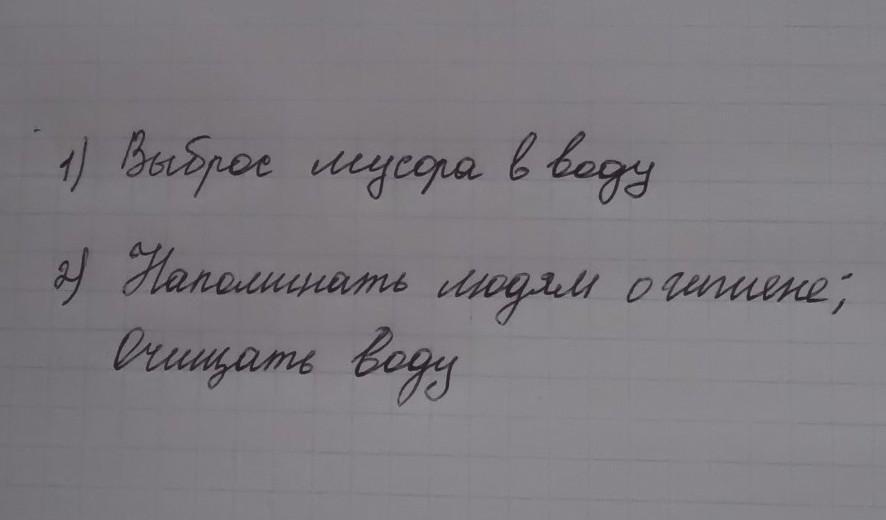 1) Выброс мусора в воду
2) Напоминать людям о гигиене;
Очищать воду